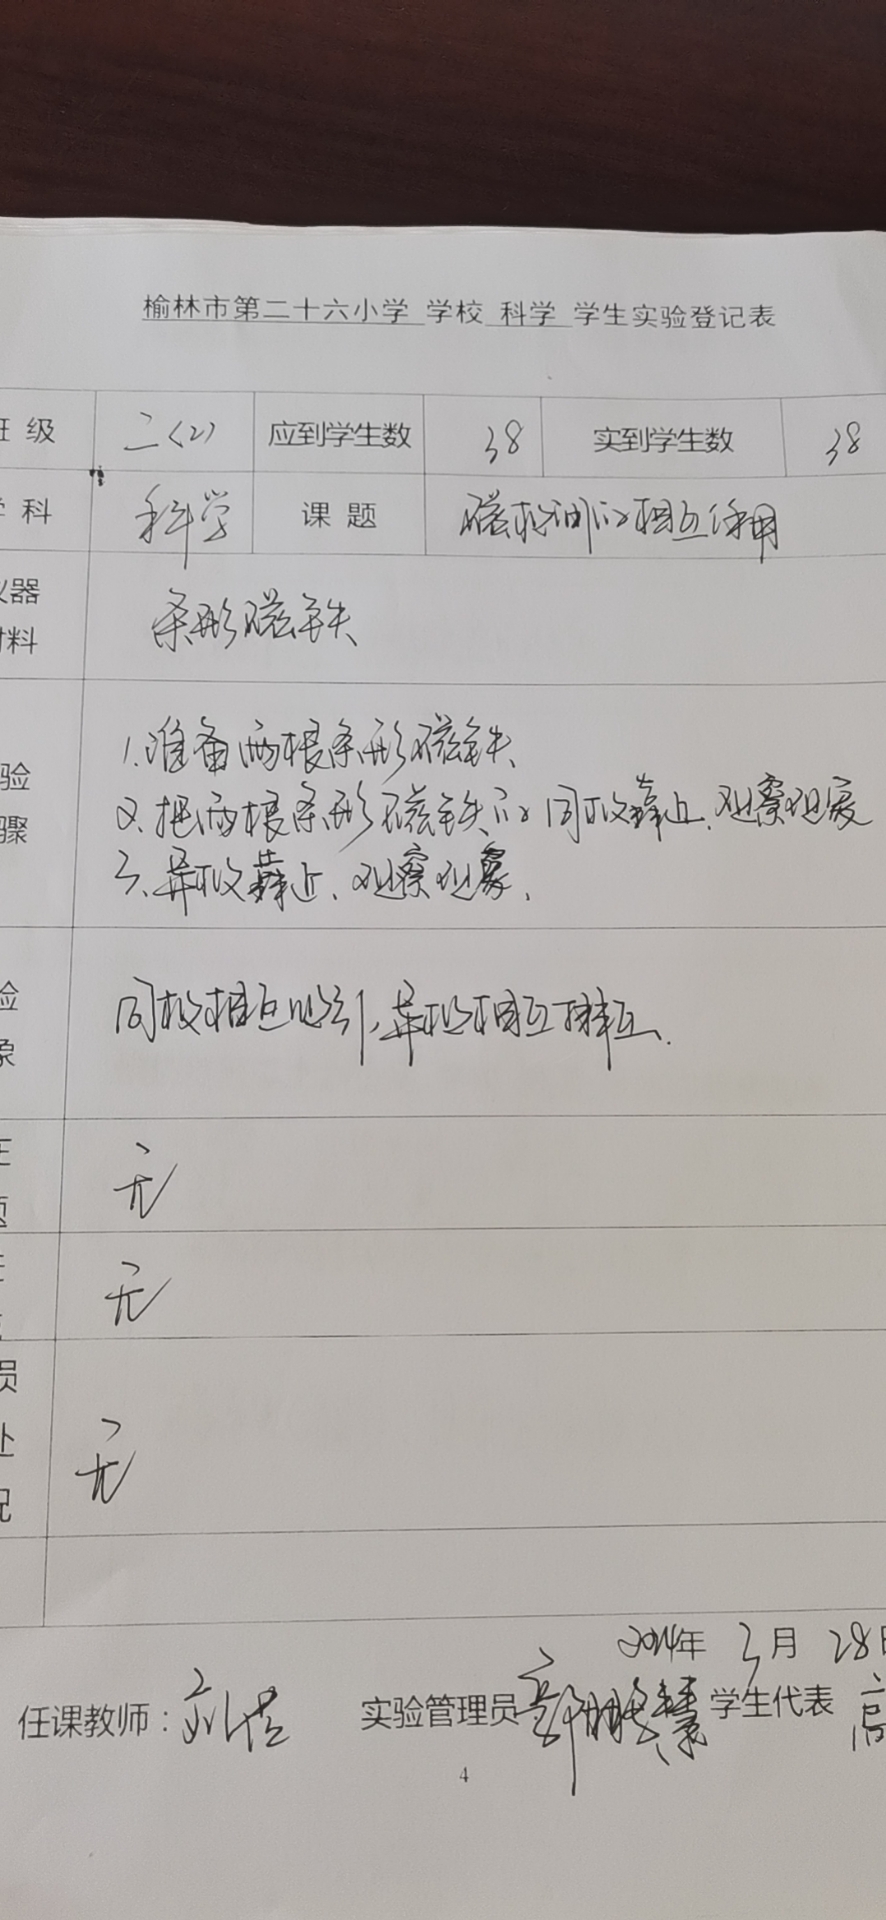 榆林市第二十六小学 学校 科学 学生实验登记表
班 级 二(2) 应到学生数 38 实到学生数 38
学 科 科学 课 题 磁极间的相互作用
仪器 条形磁铁
材料
1.准备两根条形磁铁
验
2.把两根条形磁铁的同极靠近.观察现象
骤
3.异极靠近.观察现象.
验 同极相互吸引,异极相互排斥.
象
无
题
无
员
处 无
况
2024年 3月 28日
任课教师: 实验管理员 学生代表 高
4